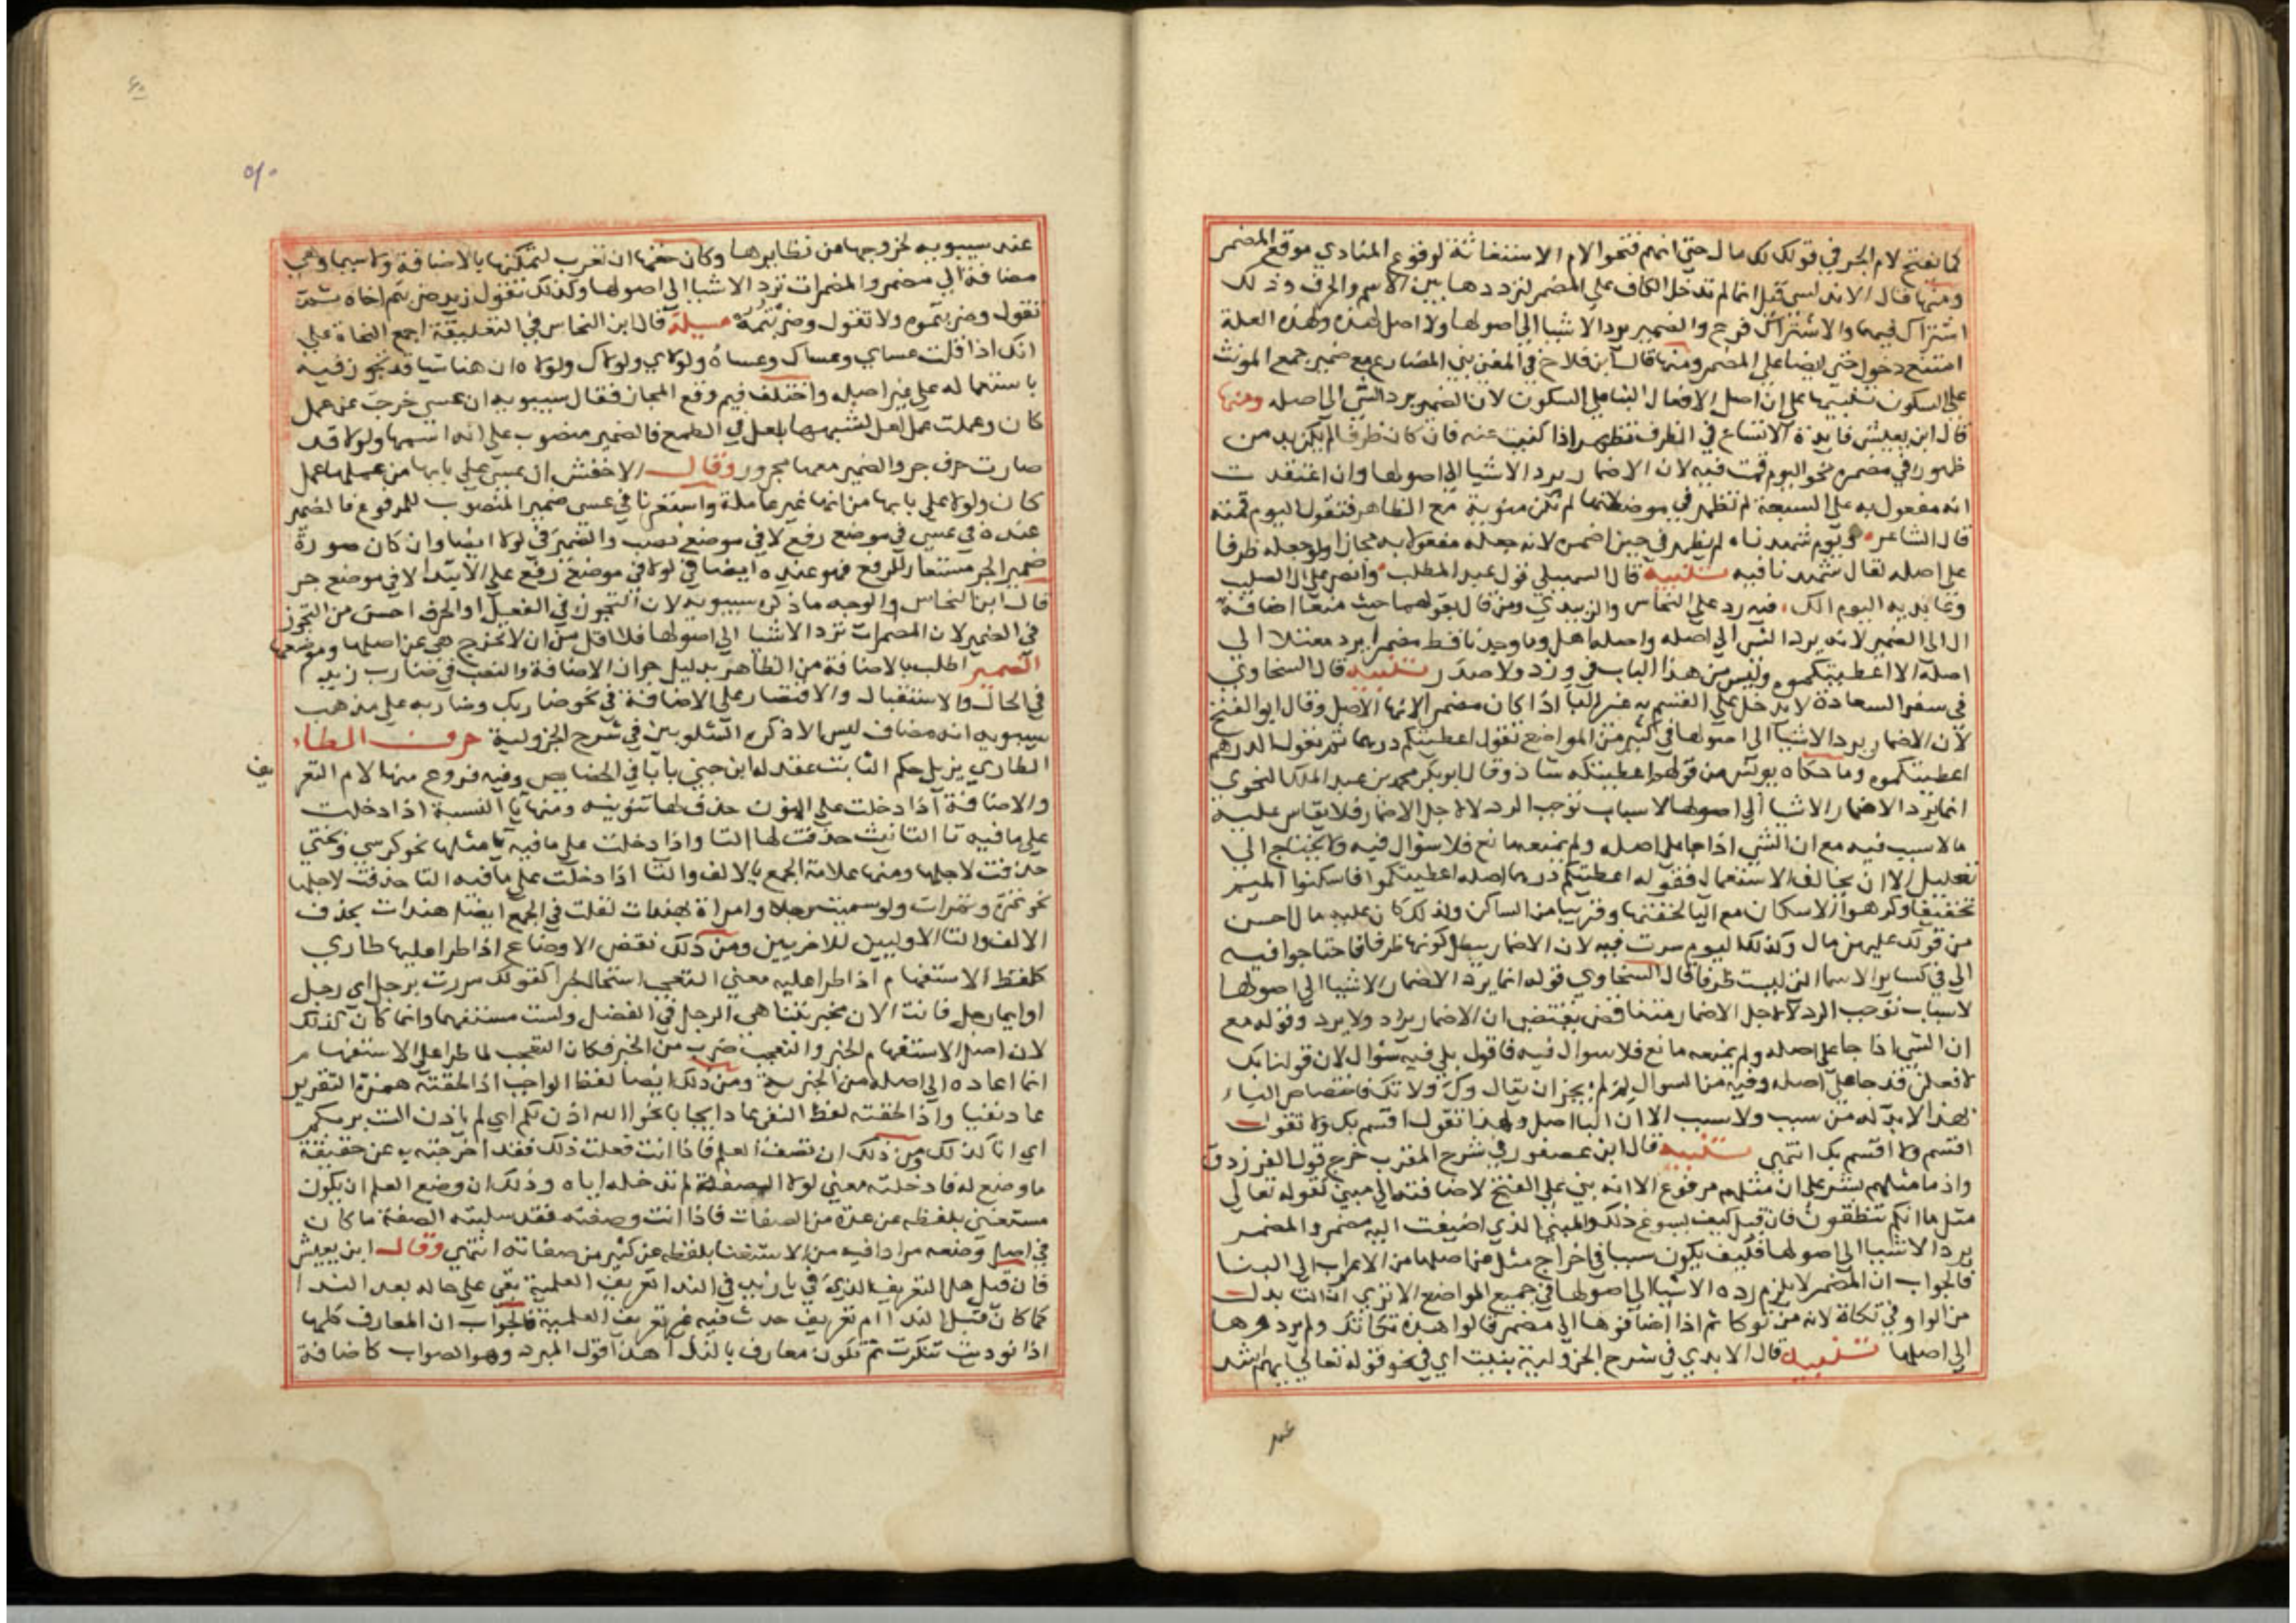 كما تفتح لام الجر في قولك لك مال حتى انهم فتحوا لام الاستغاثة لوقوع المنادي موقع المضمر
ومنها قال الاندلسي قيل انما لم تدخل الكاف علي المضمر لترددها بين الاسم والحرف وذلك
اشتراك فيهما والاشتراك فرع والضمير يرد الاشيا الي اصولها ولا اصل لهذه ولهذه العلة
امتنع دخول حتى ايضا علي المضمر ومنها قال ابن فلاح في المغني بني المضارع مع ضمير جمع المونث
علي السكون تنبيها علي ان اصل الافعال البنا علي السكون لان الضمير يرد الشي الي اصله ومنها
قال ابن يعيش فايدة الاتساع في الظرف تظهر اذا كنيت عنه فان كان ظرفا لم يكن بد من
ظهور في مضمره نحو اليوم قمت فيه لان الاضمار يرد الاشيا الي اصولها وان اعتقدت
انه مفعول به علي السعة لم تظهر في موضعها لانها لم تكن منوية مع الظاهر فتقول اليوم قمته
قال الشاعر ويوم شهدناه لم يظهر في حين اضمره لانه جعله مفعولا به مجازا ولو جعله ظرفا
علي اصله لقال شهدنا فيه تنبيه قال السهيلي قول عبد المطلب وانصر علي ال الصليب
وعابديه اليوم الك فيه رد علي النحاس والزبيدي ومن قال بقولهما حيث منعا اضافة
ال الي الضمير لانه يرد الشي الي اصله واصله اهل وما وجدنا قط مضمرا يرد معتلا الي
اصله الا اعطيتكموه وليس من هذا الباب في ورد ولا صدر تنبيه قال السخاوي
في سفر السعادة لا يدخل علي القسم به غير البا اذا كان مضمرا لانها الاصل وقال ابو الفتح
لان الاضمار يرد الاشيا الي اصولها في كثير من المواضع تقول اعطيتكم درهما ثم تقول الدرهم
اعطيتكموه وما حكاه يونس من قولهم اعطيتكه شاذ وقال ابو بكر محمد بن عبد الملك النحوي
انما يرد الاضمار الاشيا الي اصولها لاسباب توجب الرد لا لاجل الاضمار فلا يقاس عليه
ما لا سبب فيه مع ان الشي اذا جا علي اصله ولم يمنعه مانع فلا سوال فيه ولا يحتاج الي
تعليل الا ان يخالف الاستعمال فقوله اعطيتكم درهما اصله اعطيتكموا فاسكنوا الميم
تخفيفا وكرهوا الاسكان مع اليا لخفتها وقربها من الساكن ولذلك كان عليه مال احسن
من قولك عليهن مال وكذلك اليوم سرت فيه لان الاضمار يبطل كونها ظرفا فاحتاجوا فيه
الي في كساير الاسما التي ليست ظرفا قال السخاوي قوله انما يرد الاضمار الاشيا الي اصولها
لاسباب توجب الرد لا لاجل الاضمار متناقض يقتضي ان الاضمار يراد ولا يرد وقوله مع
ان الشي اذا جا علي اصله ولم يمنعه مانع فلا سوال فيه فاقول بلي فيه سوال لان قولنا بك
لافعلن قد جا علي اصله وفيه من السوال لم لم يجز ان يقال وك ولا تك فاختصاص الباء
بهذا لا بد له من سبب ولا سبب الا ان البا اصل ولهذا تقول اقسم بك ولا تقول
اقسم ولا اقسم بك انتهى تنبيه قال ابن عصفور في شرح المقرب خرج قول الفرزدق
واذ ما مثلهم بشر علي ان مثلهم مرفوع الا انه بني علي الفتح لاضافته الي مبني لقوله تعالى
مثل ما انكم تنطقون فان قيل كيف يسوغ ذلك والمبني الذي اضيفت اليه مضمر والمضمر
يرد الاشيا الي اصولها فكيف يكون سببا في اخراج مثل عن اصلها من الاعراب الي البنا
فالجواب ان المضمر لا يلزم رده الاشيا الي اصولها في جميع المواضع الا ترى ان التا بدل
من الواو في تكاة لانه من توكا ثم اذا اضافوها الي مضمر قالوا هذه تكاتك ولم يردوها
الي اصلها تنبيه قال الابدي في شرح الجزولية بنيت اي في نحو قوله تعالي ايهم اشد
عند
عند سيبويه لخروجها عن نظايرها وكان حقها ان تعرب لتمكنها بالاضافة ولا سيما وهي
مضافة الي مضمر والمضمرات ترد الاشيا الي اصولها وكذلك تقول زيد ضربتم اخاه بشمت
تقول وضربتموه ولا تقول وضربتمه مسيلة قال ابن النحاس في التعليقة اجمع النحاة علي
انك اذا قلت عساي وعساك وعساه ولولاي ولولاك ولولاه ان هنا شيا قد تجوز فيه
باستعماله علي غير اصله واختلف فيم وقع المجاز فقال سيبويه ان عسي خرجت عن عمل
كان وعملت عمل لعل لشبهها بلعل في الطمع فالضمير منصوب علي انه اسمها ولولا قد
صارت حرف جر والضمير معها مجرور وقال الاخفش ان عسي علي بابها من عملها عمل
كان ولولا علي بابها من انها غير عاملة واستعرنا في عسي ضمير المنصوب للمرفوع فالضمير
عنده في عسي في موضع رفع لا في موضع نصب والضمير في لولا ايضا وان كان صورة
ضمير الجر مستعار للرفع فهو عنده ايضا في لولا في موضع رفع علي الابتدا لا في موضع جر
قال ابن النحاس والوجه ما ذكره سيبويه لان التجوز في الفعل او الحرف احسن من التجوز
في الضمير لان المضمرات ترد الاشيا الي اصولها فلا اقل من ان لا تخرج هي عن اصلها وموضعها
الضمير اطلب بالاضافة من الظاهر بدليل جواز الاضافة والنصب في ضارب زيد
في الحال والاستقبال والاقتصار علي الاضافة في نحو ضاربك وضاربه علي مذهب
سيبويه انه مضاف ليس الا ذكره الشلوبين في شرح الجزولية حرف الطاء
الطاري يزيل حكم الثابت عقد له ابن جني بابا في الخصاص وفيه فروع منها لام التعر
يف
والاضافة اذا دخلت علي المنون حذف لها تنوينه ومنها يا النسبة اذا دخلت
علي ما فيه تا التانيث حذفت لها التا واذا دخلت علي ما فيه يا مثلها نحو كرسي وبختي
حذفت لاجلها ومنها علامة الجمع بالالف والتا اذا دخلت علي ما فيه التا حذفت لاجلها
نحو تمرة وتمرات ولو سميت رجلا وامراة بهندات لقلت في الجمع ايضا هندات بحذف
الالف والتا الاوليين للاخريين ومن ذلك نقض الاوضاع اذا طرا عليها طاري
كلفظ الاستفهام اذا طرا عليه معني التعجب استحال خبرا كقولك مررت برجل اي رجل
او ايما رجل فانت الان مخبر بتناهي الرجل في الفضل ولست مستفهما وانما كان كذلك
لان اصل الاستفهام الخبر والتعجب ضرب من الخبر فكان التعجب لما طرا علي الاستفهام
انما اعاده الي اصله من الخبرية ومن ذلك ايضا لفظ الواجب اذا لحقته همزة التقرير
عاد نفيا واذا لحقته لفظ النفي عاد ايجابا نحو الله اذن لكم اي لم ياذن الست بربكم
اي انا كذلك ومن ذلك ان تصف العلم فاذا انت فعلت ذلك فقد اخرجته به عن حقيقة
ما وضع له فادخلته معني لولا الصفة لم تدخله اياه وذلك ان وضع العلم ان يكون
مستغني بلفظه عن عدة من الصفات فاذا انت وصفته فقد سلبته الصفة ما كان
في اصل وضعه مرادا فيه من الاستغنا بلفظه عن كثير من صفاته انتهي وقال ابن يعيش
فان قيل هل التعريف الذي في يا زيد في الندا تعريف العلمية بقي علي حاله بعد الندا
كما كان قبل الندا ام تعريف حدث فيه غير تعريف العلمية فالجواب ان المعارف كلها
اذا نوديت تنكرت ثم تكون معارف بالندا هذا قول المبرد وهو الصواب كاضافة